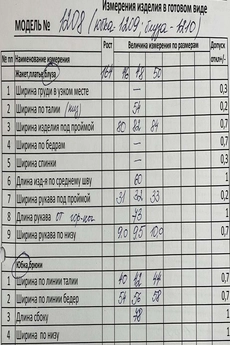 Измерения изделия в готовом виде
МОДЕЛЬ № 1208 (юбка-1209; блуза-1210)
№ пп Наименование измерения Рост Величина измерения по размерам Допуск откл+/-
Жакет,платье,блуза 164 46 48 50
1 Ширина груди в узком месте — 0,3
2 Ширина по талии (низ) 54 0,2
3 Ширина изделия под проймой 80 82 84 0,7
4 Ширина по бедрам — 0,7
5 Ширина спинки — 0,3
6 Длина изд-я по среднему шву 60 1
7 Ширина рукава под проймой 31 32 33 0,2
8 Длина рукава от гор-ны 73 1
9 Ширина рукава по низу 9,0 9,5 10,0 0,7
Юбка,брюки
1 Ширина по линии талии 40 42 44 0,7
2 Ширина по линии бедер 54 56 58 0,7
3 Длина сбоку 78 1
4 Ширина по низу 1